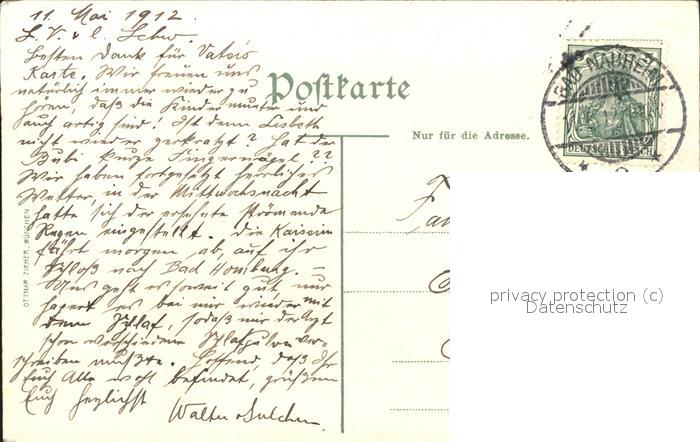 11. Mai 1912.
L. V. u. l. Schw.
Besten Dank für Vater's
Karte. Wir freuen uns
natürlich immer wieder zu
hören, daß die Kinder munter und
auch artig sind! Ist denn Lisbeth
nicht wieder gerkratzt? Hat der
Bubi kurze Fingernägel??
Wir haben fortgesetzt herrliches
Wetter, in der Mittwochnacht
hatte sich der ersehnte strömende
Regen eingestellt. Die Kaiserin
fährt morgen ab, auf ihr
Schloß nach Bad Homburg. –
Uns geht es soweit gut nur
hapert es bei mir wieder mit
dem Schlaf, sodaß mir der Arzt
schon verschiedene Schlafpulver ver-
schreiben mußte. Hoffend, daß Ihr
Euch Alle wohl befindet, grüßen
Euch herzlichst
Walter
Postkarte
Nur für die Adresse.
BAD-NAUHEIM
DEUTSCHES REICH
OTTMAR ZIEHER, MÜNCHEN
privacy protection (c)
Datenschutz